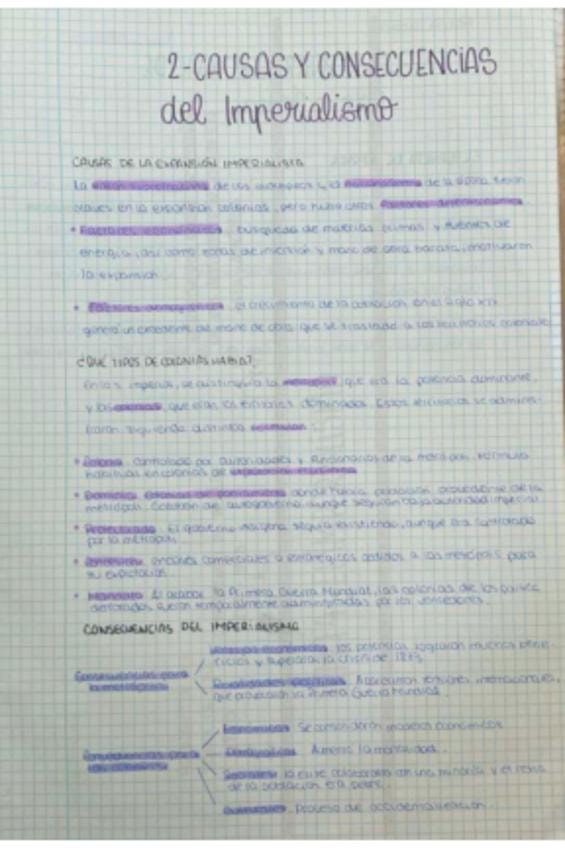 2-CAUSAS Y CONSECUENCIAS
del Imperialismo
CAUSAS DE LA EXPANSIÓN IMPERIALISTA
La de los y el de la época fueron
claves en la expansión colonial, pero hubo otros factores
• Factores económicos: búsqueda de materias primas y fuentes de
energía, así como zonas de inversión y mano de obra barata, motivaron
la expansión.
• Factores demográficos: el crecimiento de la población en el siglo XIX
generó un excedente de mano de obra que se trasladó a los territorios coloniales
¿QUÉ TIPOS DE COLONIAS HABIA?
En los imperios, se distinguía la metrópoli, que era la potencia dominante,
y las colonias, que eran los territorios dominados. Estos territorios se adminis-
traron siguiendo distintas
• Colonia: controlado por autoridades y funcionarios de la metrópoli. Fórmula
habitual en colonias de explotación económica
• Dominio: colonias de poblamiento donde había población procedente de la
metrópoli. Gozaban de autogobierno aunque seguían bajo autoridad imperial
• Protectorado: El gobierno indígena seguía existiendo, aunque era controlado
por la metrópoli
• Concesión: enclaves comerciales o estratégicos cedidos a las metrópolis para
su explotación.
• Mandato: Al acabar la Primera Guerra Mundial, las colonias de los países
derrotados fueron temporalmente administradas por los vencedores.
CONSECUENCIAS DEL IMPERIALISMO
Consecuencias para
la metrópolis
económicas: las potencias lograron muchos bene-
ficios y superaron la crisis de 1873
Rivalidades políticas: Aparecieron tensiones internacionales,
que provocaron la Primera Guerra Mundial
Consecuencias para
las colonias
Económicas: Se consolidaron modelos económicos
Demográficas: Aumentó la mortalidad.
Sociales: la élite colaboraba con una minoría y el resto
de la población era pobre.
Culturales: Proceso de occidentalización.